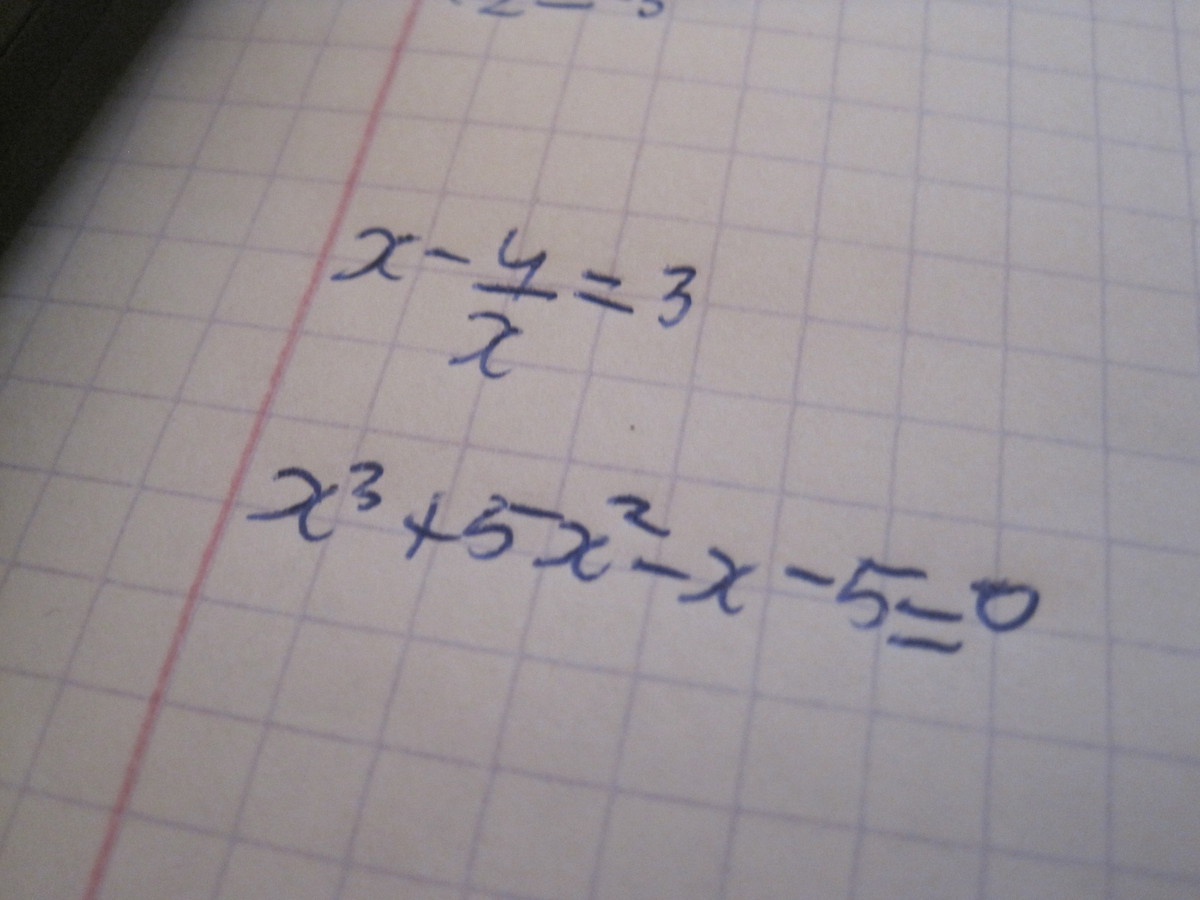 x - 4/x = 3
x³ + 5x² - x - 5 = 0